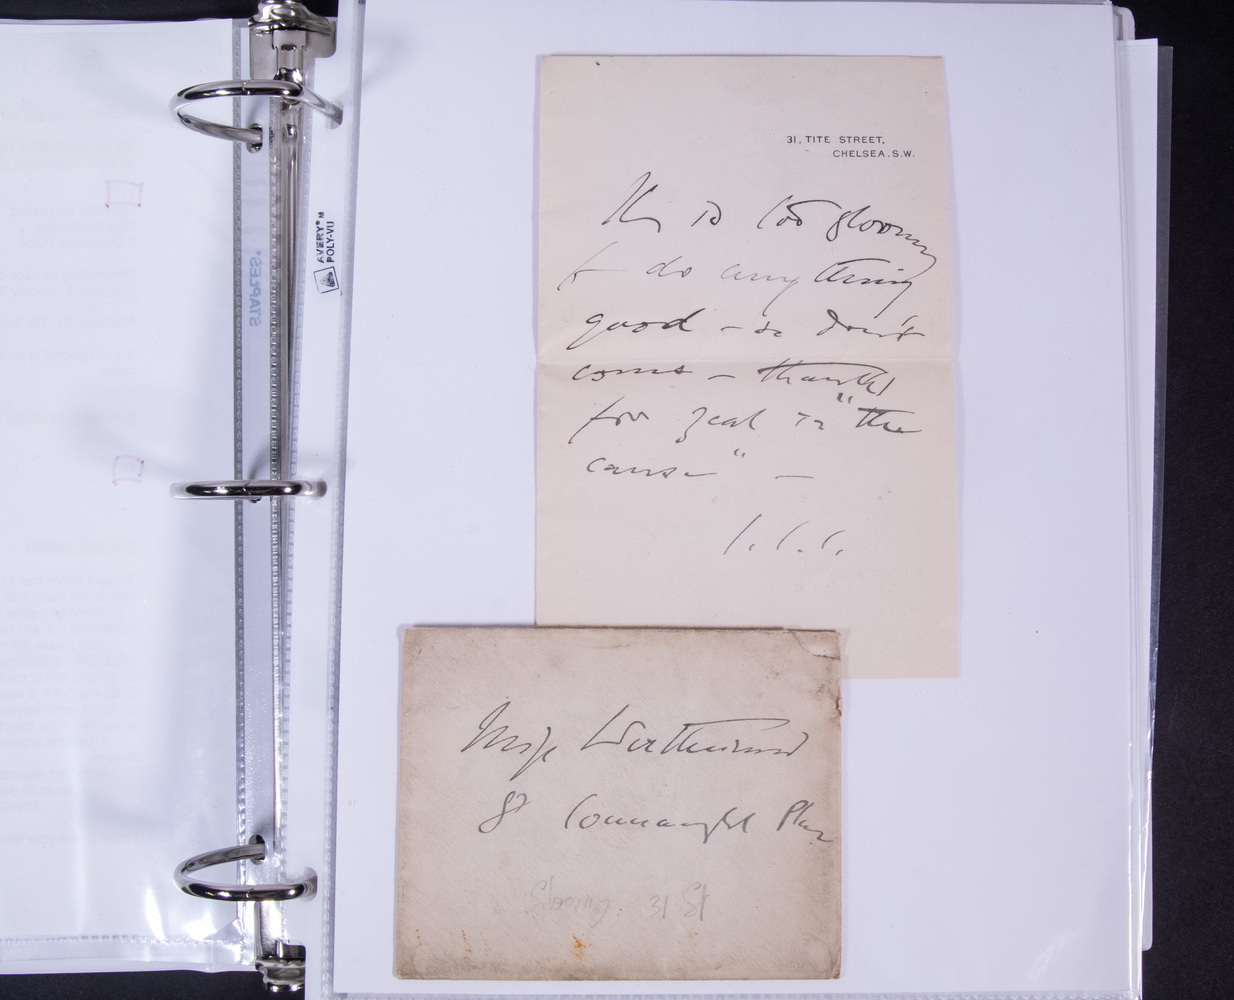 31, TITE STREET,
CHELSEA. S.W.
It is too gloomy
to do anything
good – so don't
come – thanks
for zeal in "the
cause" –
J. S. S.
Miss Wertheimer
8 Connaught Place
31 St
AVERY®
POLY-VU
STAPLES®